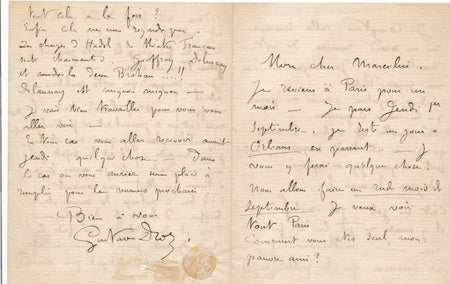 Mon cher Marcelin.
Je reviens à Paris pour un
mois — Je pars Jeudi 1er
Septembre. je reste un jour à
Orléans en passant. — Je
vous y ferai quelque chose.
Nous allons faire un rude mois de
septembre. Je veux voir
tout Paris
Comment vous êtes seul, mon
pauvre ami?
tout cela à la fois?
Enfin cela ne me regarde pas.
Les charges d'Hadol du théâtre français
sont charmantes Geoffroy Delaunay
et Madelle deux Brohan !!!!
Delaunay est mignon mignon —
Je vais bien travailler pour vous, vous
allez voir —
En tous cas vous allez recevoir avant
jeudi quelque chose — Dans
le cas où vous auriez une place à
remplir pour le numéro prochain.
Bien à vous
Gustave Droz.